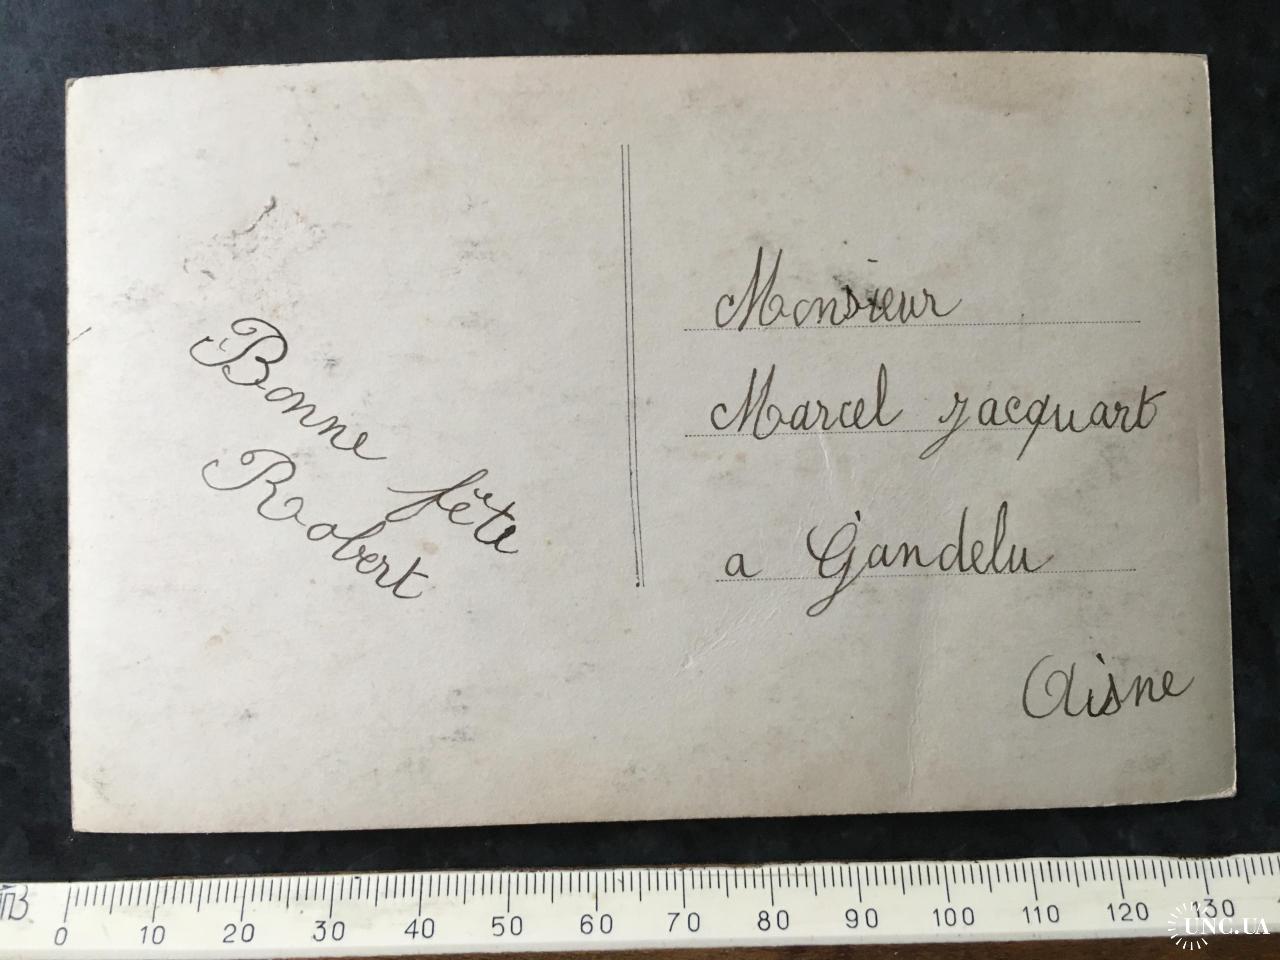 Bonne fête
Robert
Monsieur
Marcel Jacquart
a Gandelu
Aisne
0 10 20 30 40 50 60 70 80 90 100 110 120 130
UNC.UA